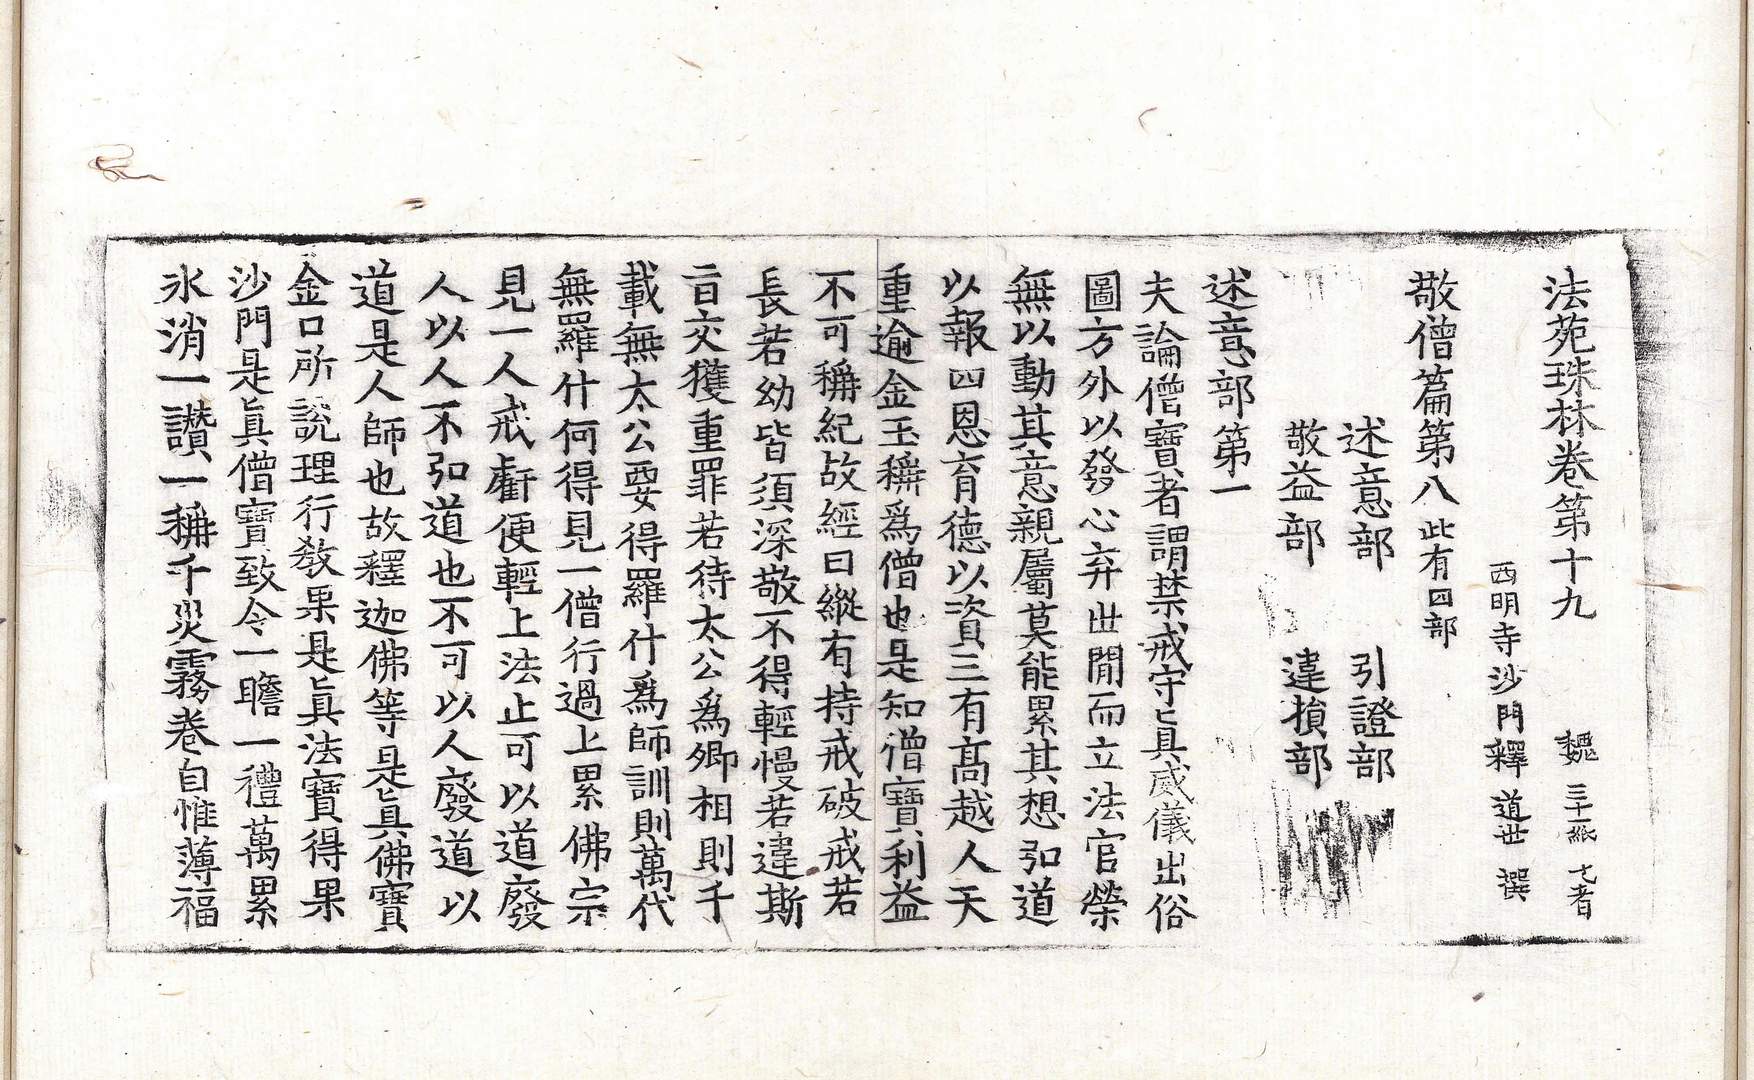 法苑珠林卷第十九 魏 三十一紙 七者
西明寺沙門釋 道世 撰
敬僧篇第八 此有四部
述意部 引證部
敬益部 違損部
述意部第一
夫論僧寶者謂禁戒守眞威儀出俗
圖方外以發心弃世閒而立法官榮
無以動其意親屬莫能累其想弘道
以報四恩育德以資三有髙越人天
重逾金玉稱爲僧也是知僧寶利益
不可稱紀故經曰縱有持戒破戒若
長若幼皆須深敬不得輕慢若違斯
旨交獲重罪若待太公爲卿相則千
載無太公要得羅什爲師訓則萬代
無羅什何得見一僧行過上累佛宗
見一人戒虧便輕上法止可以道廢
人以人不弘道也不可以人廢道以
道是人師也故釋迦佛等是眞佛寶
金口所說理行教果是眞法寶得果
沙門是眞僧寶致令一瞻一禮萬累
氷消一讚一稱千災霧卷自惟薄福